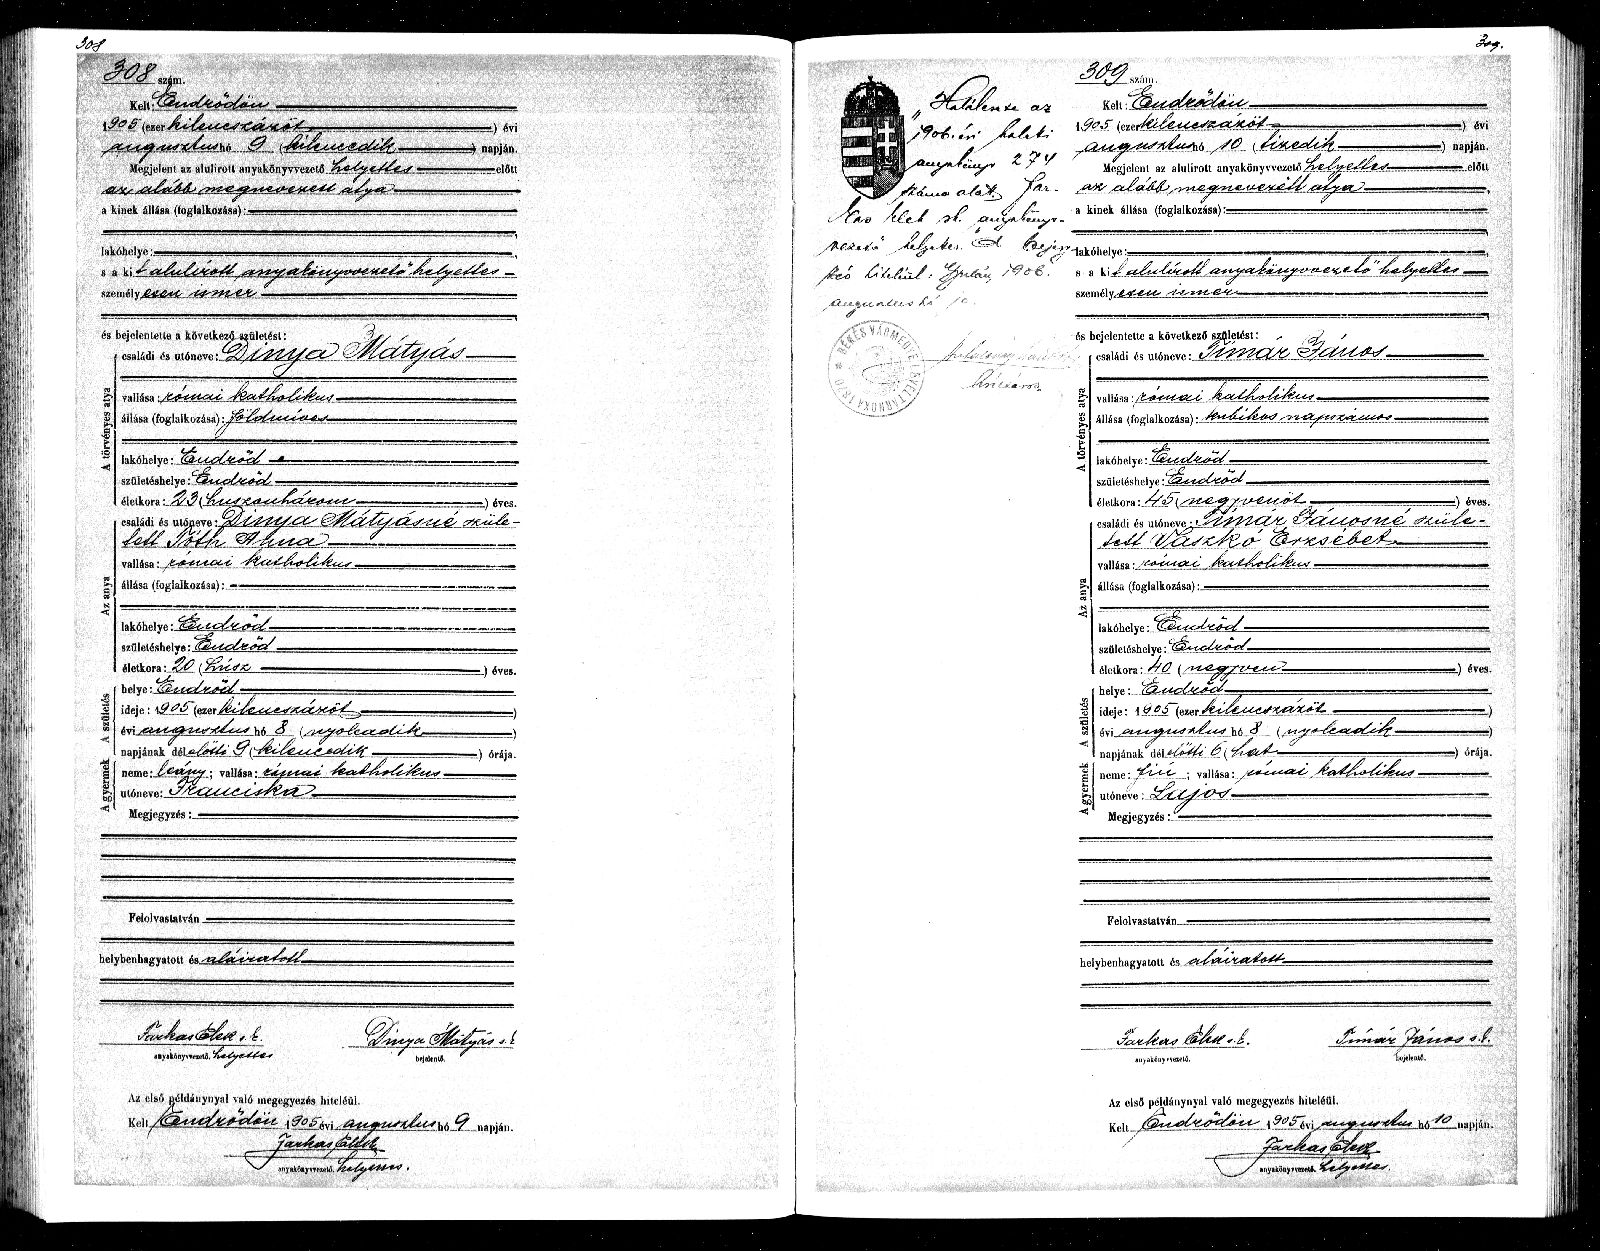 308
308 szám.
Kelt: Endrődön
1905 (ezer kilencszázöt ) évi
augusztus hó 9 (kilencedik ) napján.
Megjelent az alulirott anyakönyvvezető helyettes előtt
az alább megnevezett atya
a kinek állása (foglalkozása):
lakóhelye:
s a kit alulírott anyakönyvvezető helyettes
személyesen ismer
és bejelentette a következő születést:
A törvényes atya
családi és utóneve: Dinya Mátyás
vallása: római katholikus
állása (foglalkozása): földmíves
lakóhelye: Endrőd
születéshelye: Endrőd
életkora: 23 (huszonhárom ) éves.
Az anya
családi és utóneve: Dinya Mátyásné szüle-
tett Tóth Anna
vallása: római katholikus
állása (foglalkozása):
lakóhelye: Endrőd
születéshelye: Endrőd
életkora: 20 (húsz ) éves.
A születés
helye: Endrőd
ideje: 1905 (ezer kilencszázöt )
évi augusztus hó 8 (nyolcadik )
napjának délelőtti 9 (kilencedik ) órája.
A gyermek
neme: leány; vallása: római katholikus
utóneve: Franciska
Megjegyzés:
Felolvastatván
helybenhagyatott és aláiratott
Farkas Elek s. k. Dinya Mátyás s. k.
anyakönyvvezető. helyettes bejelentő.
Az első példánynyal való megegyezés hiteléül.
Kelt Endrődön 1905 évi augusztus hó 9 napján.
Farkas Elek
anyakönyvvezető. helyettes.
309.
"Halálesete az
1906. évi halotti
anyakönyv 274
száma alatt. Far-
kas Elek sk. anyakönyv-
vezető helyettes. A bejegy-
zés hiteléül. Gyulán, 1906.
augusztus hó
BÉKÉS VÁRMEGYE
309 szám.
Kelt: Endrődön
1905 (ezer kilencszázöt ) évi
augusztus hó 10 (tizedik ) napján.
Megjelent az alulirott anyakönyvvezető helyettes előtt
az alább megnevezett atya
a kinek állása (foglalkozása):
lakóhelye:
s a kit alulírott anyakönyvvezető helyettes
személyesen ismer
és bejelentette a következő születést:
A törvényes atya
családi és utóneve: Tímár János
vallása: római katholikus
állása (foglalkozása): kubikos napszámos
lakóhelye: Endrőd
születéshelye: Endrőd
életkora: 45 (negyvenöt ) éves.
Az anya
családi és utóneve: Tímár Jánosné szüle-
tett Vaszkó Erzsébet
vallása: római katholikus
állása (foglalkozása):
lakóhelye: Endrőd
születéshelye: Endrőd
életkora: 40 (negyven ) éves.
A születés
helye: Endrőd
ideje: 1905 (ezer kilencszázöt )
évi augusztus hó 8 (nyolcadik )
napjának délelőtti 6 (hat ) órája.
A gyermek
neme: fiú; vallása: római katholikus
utóneve: Lajos
Megjegyzés:
Felolvastatván
helybenhagyatott és aláiratott
Farkas Elek s. k. Tímár János s. k.
anyakönyvvezető. bejelentő.
Az első példánynyal való megegyezés hiteléül.
Kelt Endrődön 1905 évi augusztus hó 10 napján.
Farkas Elek
anyakönyvvezető. helyettes.